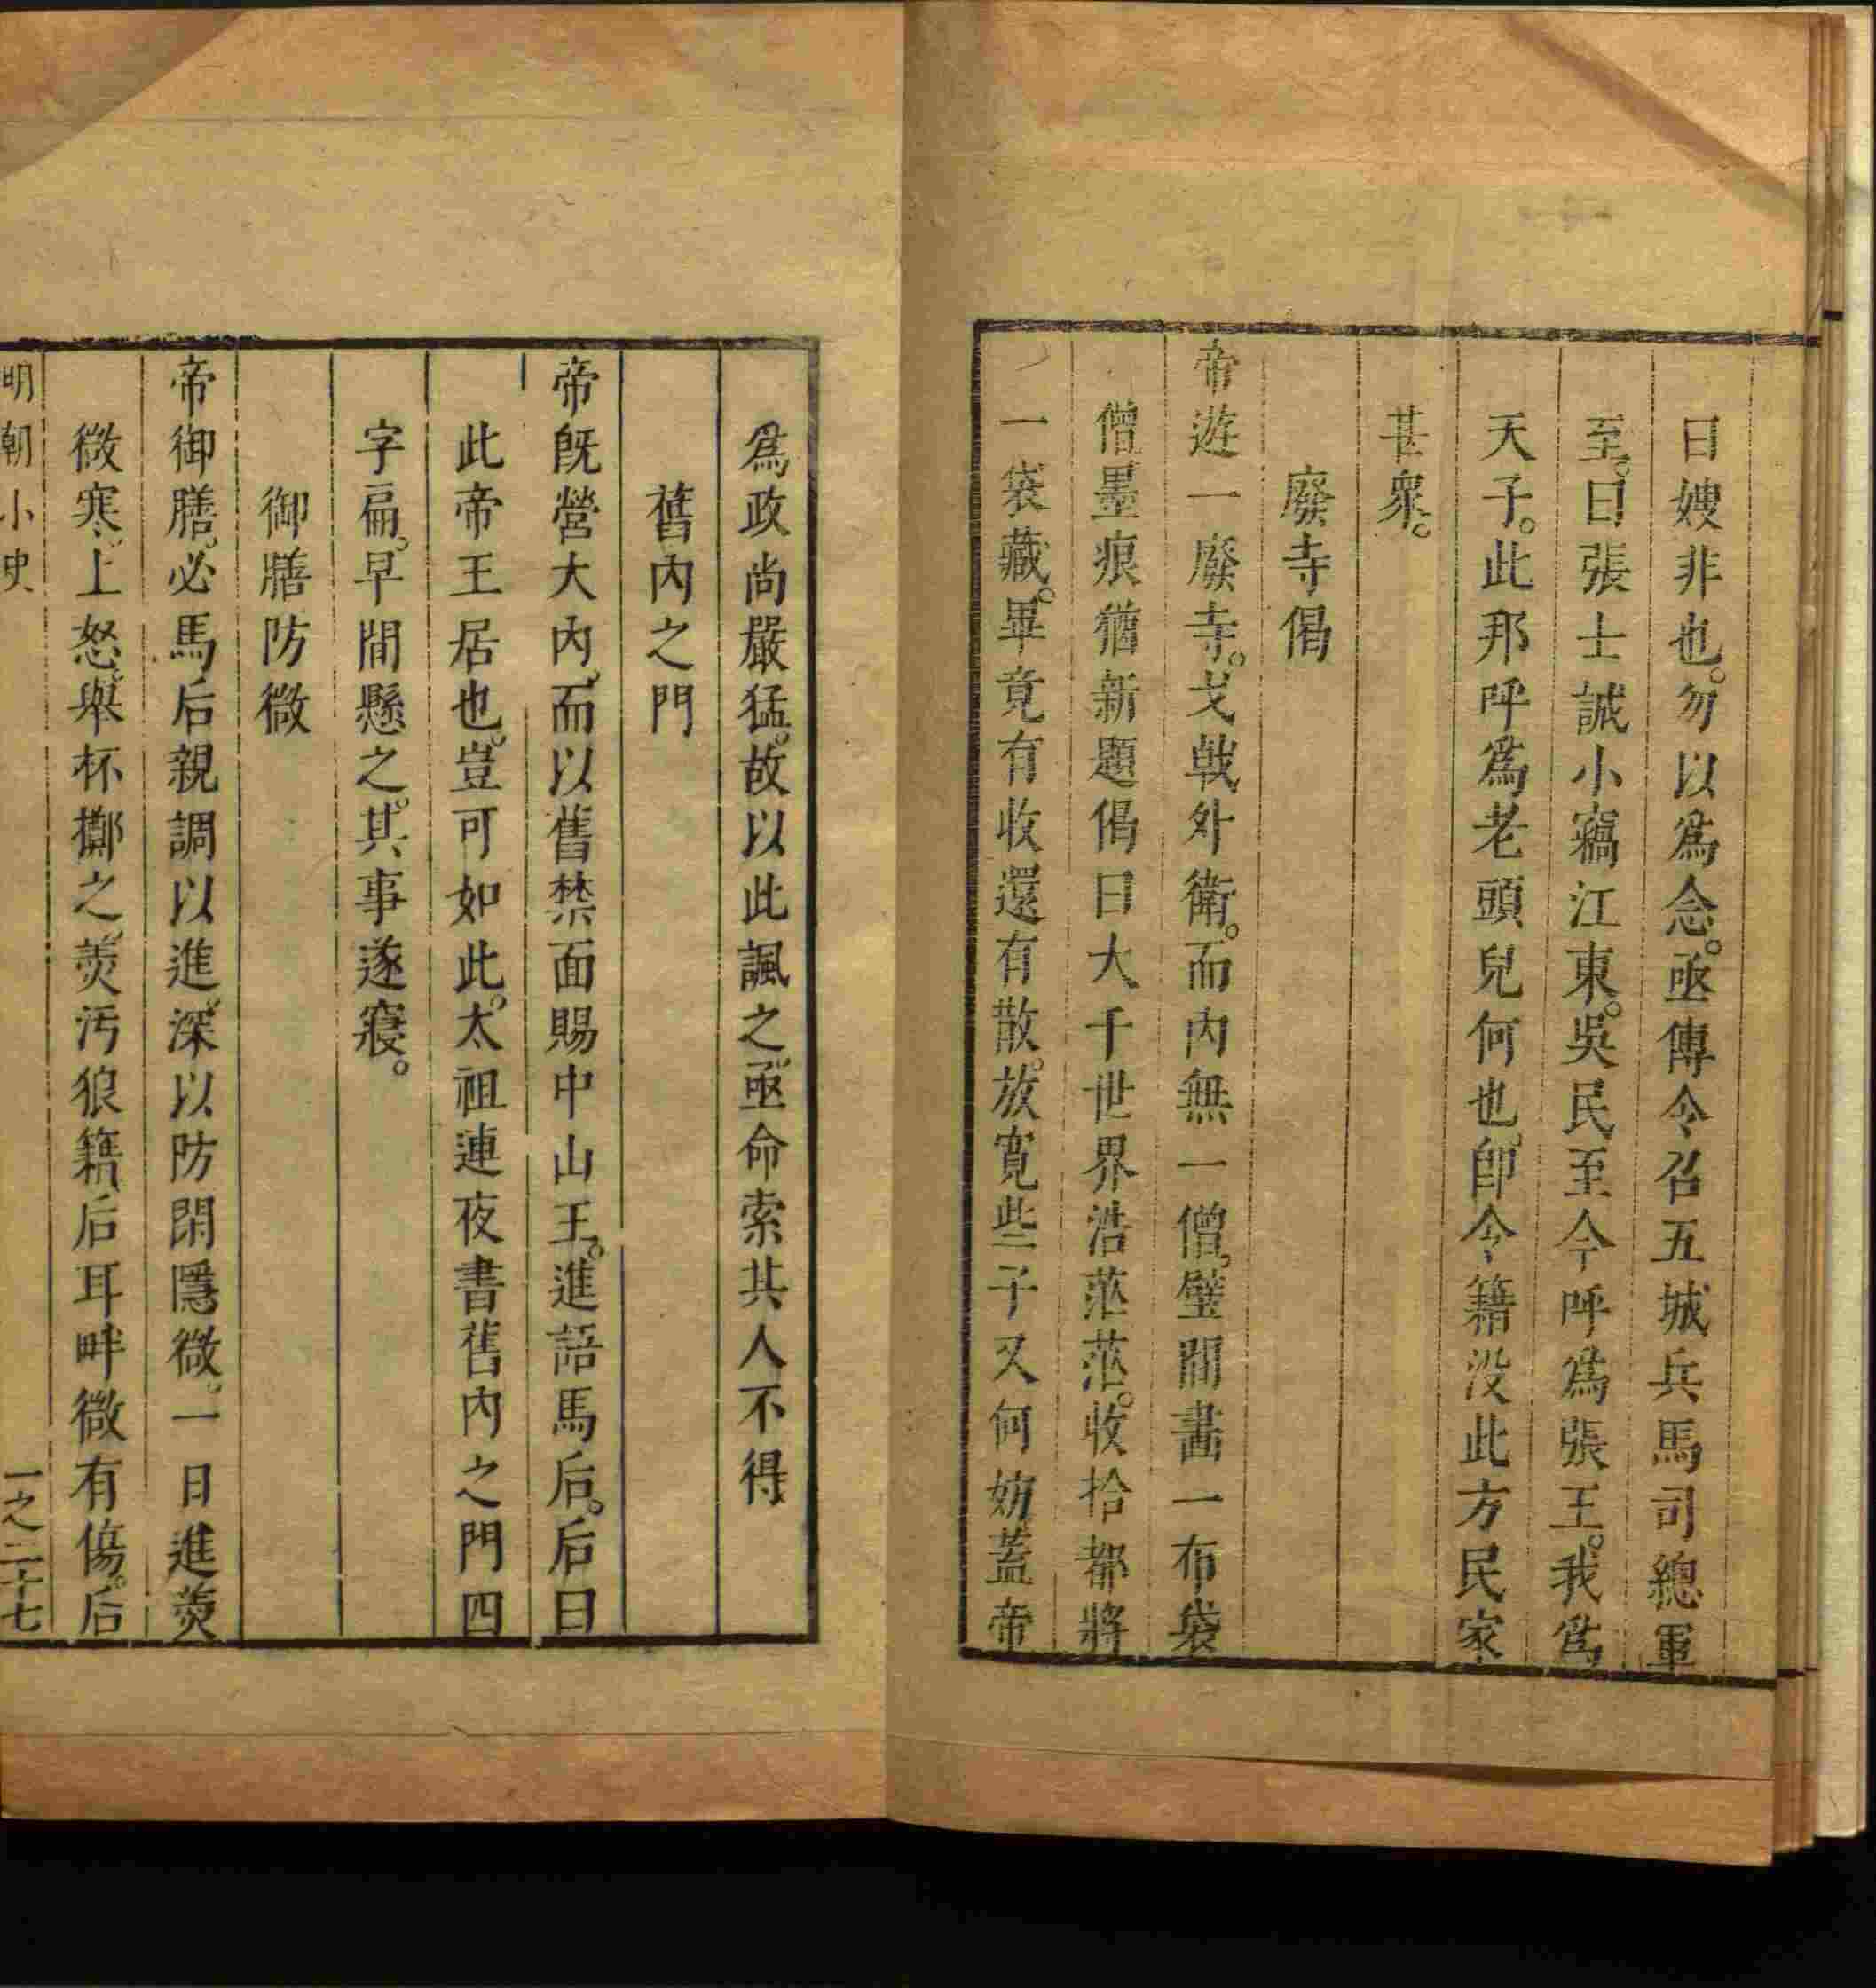 曰嫂非也。勿以爲念。亟傳令召五城兵馬司總軍
至。曰張士誠小竊江東。吳民至今呼爲張王。我爲
天子。此邦呼爲老頭兒何也。卽令籍没此方民家
甚衆。
廢寺偈
帝遊一廢寺。戈戟外衛。而内無一僧。壁間畵一布袋
僧墨痕猶新題偈曰大千世界浩茫茫。收拾都將
一袋藏。畢竟有收還有散。放寛些子又何妨蓋帝
爲政尚嚴猛。故以此諷之。亟命索其人不得
舊内之門
帝旣營大内。而以舊禁面賜中山王。進語馬后。后曰
此帝王居也。豈可如此。太祖連夜書舊内之門四
字扁。早間懸之。其事遂寢。
御膳防微
帝御膳。必馬后親調以進。深以防閑隱微。一日進羮
微寒。上怒。舉杯擲之。羮汚狼籍后耳畔微有傷。后
明朝小史
一之二十七